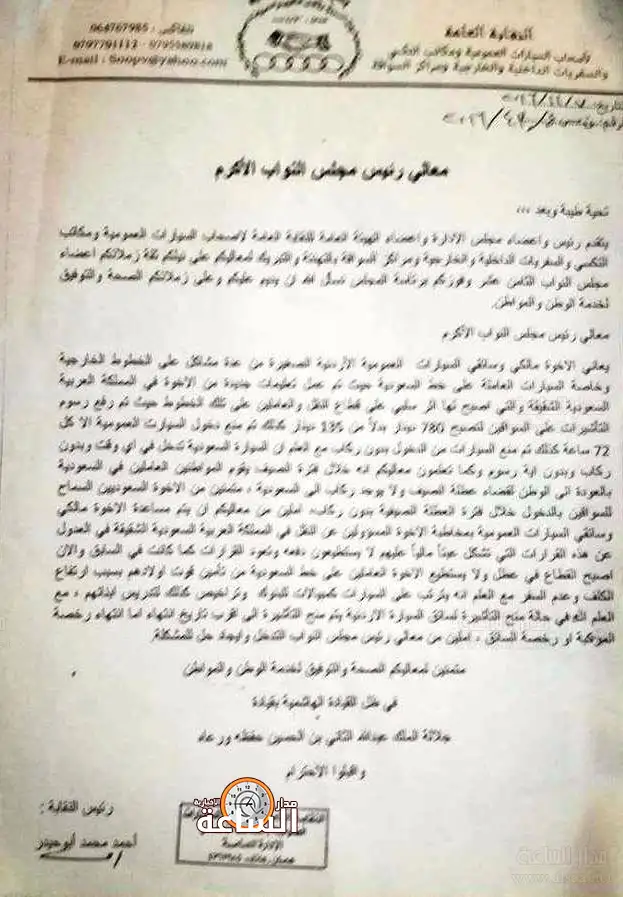 النقابة العامة
لأصحاب السيارات العمومية ومكاتب التكسي
والسفريات الداخلية والخارجية ومراكز السواقة
تلفاكس : 064767985
E-mail : Soopv@yahoo.com
معالي رئيس مجلس النواب الأكرم
تحية طيبة وبعد ,,,
يتقدم رئيس واعضاء مجلس الادارة واعضاء الهيئة العامة للنقابة العامة لاصحاب السيارات العمومية ومكاتب
التكسي والسفريات الداخلية والخارجية ومراكز السواقة بالتهنئة والتبريك لمعاليكم على نيلكم ثقة زملائكم اعضاء
مجلس النواب الثامن عشر وفوزكم برئاسة المجلس نسأل الله ان يديم عليكم وعلى زملائكم الصحة والتوفيق
لخدمة الوطن والمواطن.
معالي رئيس مجلس النواب الأكرم
يعاني الاخوة مالكي وسائقي السيارات العمومية الاردنية الصغيرة من عدة مشاكل على الخطوط الخارجية
وخاصة السيارات العاملة على خط السعودية حيث تم عمل تعليمات جديدة من الاخوة في المملكة العربية
السعودية الشقيقة والتي اصبح لها اثر سلبي على قطاع النقل والعاملين على تلك الخطوط حيث تم رفع رسوم
التأشيرات على السواقين لتصبح 780 دينار بدلاً من 135 دينار كذلك تم منع دخول السيارت العمومية الا كل
72 ساعة كذلك تم منع السيارات من الدخول بدون ركاب مع العلم ان السيارة السعودية تدخل في أي وقت وبدون
ركاب وبدون اية رسوم وكما تعلمون معاليكم انه خلال فترة الصيف يقوم المواطنين العاملين في السعودية
بالعودة الى الوطن لقضاء عطلة الصيف ولا يوجد ركاب الى السعودية ، متمنين من الاخوة السعوديين السماح
للسواقين بالدخول خلال فترة العطلة الصيفية بدون ركاب، املين من معاليكم ان يتم مساعدة الاخوة مالكي
وسائقي السيارات العمومية بمخاطبة الاخوة المسؤولين عن النقل في المملكة العربية السعودية الشقيقة في العدول
عن هذه القرارات التي تشكل عبئاً مالياً عليهم لا يستطيعون دفعه وتعود القرارات كما كانت في السابق والان
اصبح القطاع في عطل ولا يستطيع الاخوة العاملين على خط السعودية من تأمين قوت اولادهم بسبب ارتفاع
الكلف وعدم السفر مع العلم انه يترتب على السيارات كمبيالات للبنوك وتراخيص كذلك تدريس ابنائهم ، مع
العلم انه في حالة منح التأشيرة لسائق السيارة الاردنية يتم منح التأشيرة الى اقرب تاريخ انتهاء اما انتهاء رخصة
المركبة او رخصة السائق ، املين من معالي رئيس مجلس النواب التدخل وايجاد حل للمشكلة.
متمنين لمعاليكم الصحة والتوفيق لخدمة الوطن والمواطن
في ظل القيادة الهاشمية بقيادة
جلالة الملك عبدالله الثاني بن الحسين حفظه ورعاه
واقبلوا الاحترام
رئيس النقابة :
أحمد محمد أبوحيدر
مدار الساعة الإخبارية
الادارة العامة
مدار الساعة